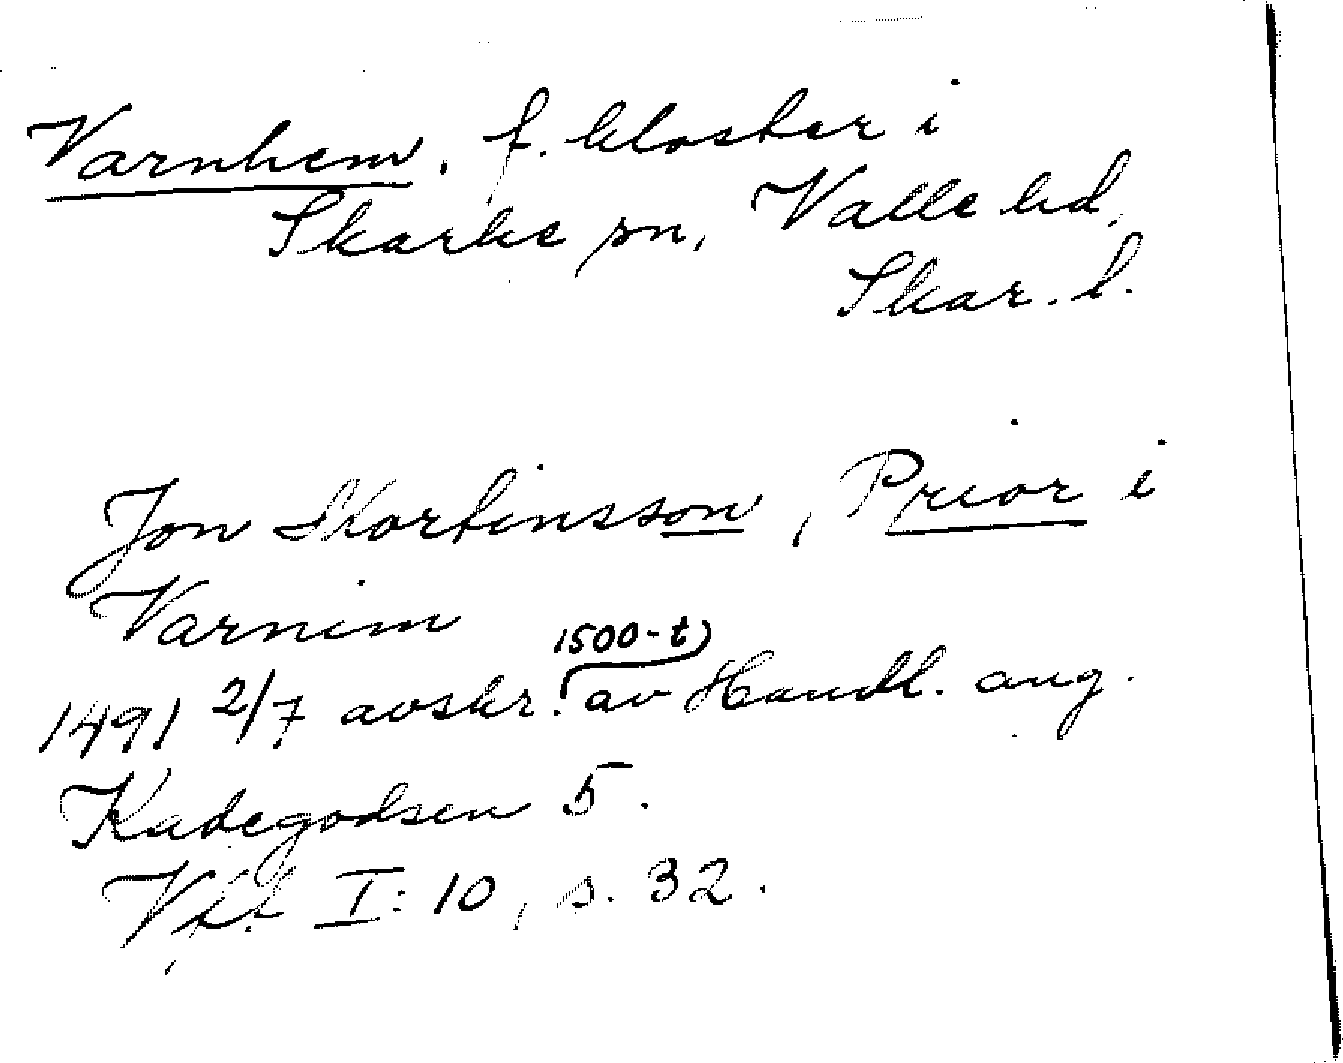 Varnhem, f. kloster i
Skarke sn, Valle hd,
Skar. l.
Jon Mortinsson, Prior i
Varnim
1500-t)
1491 2/7 avskr. (av Handl. ang.
Kadegodsen 5.
I: 10, s. 32.